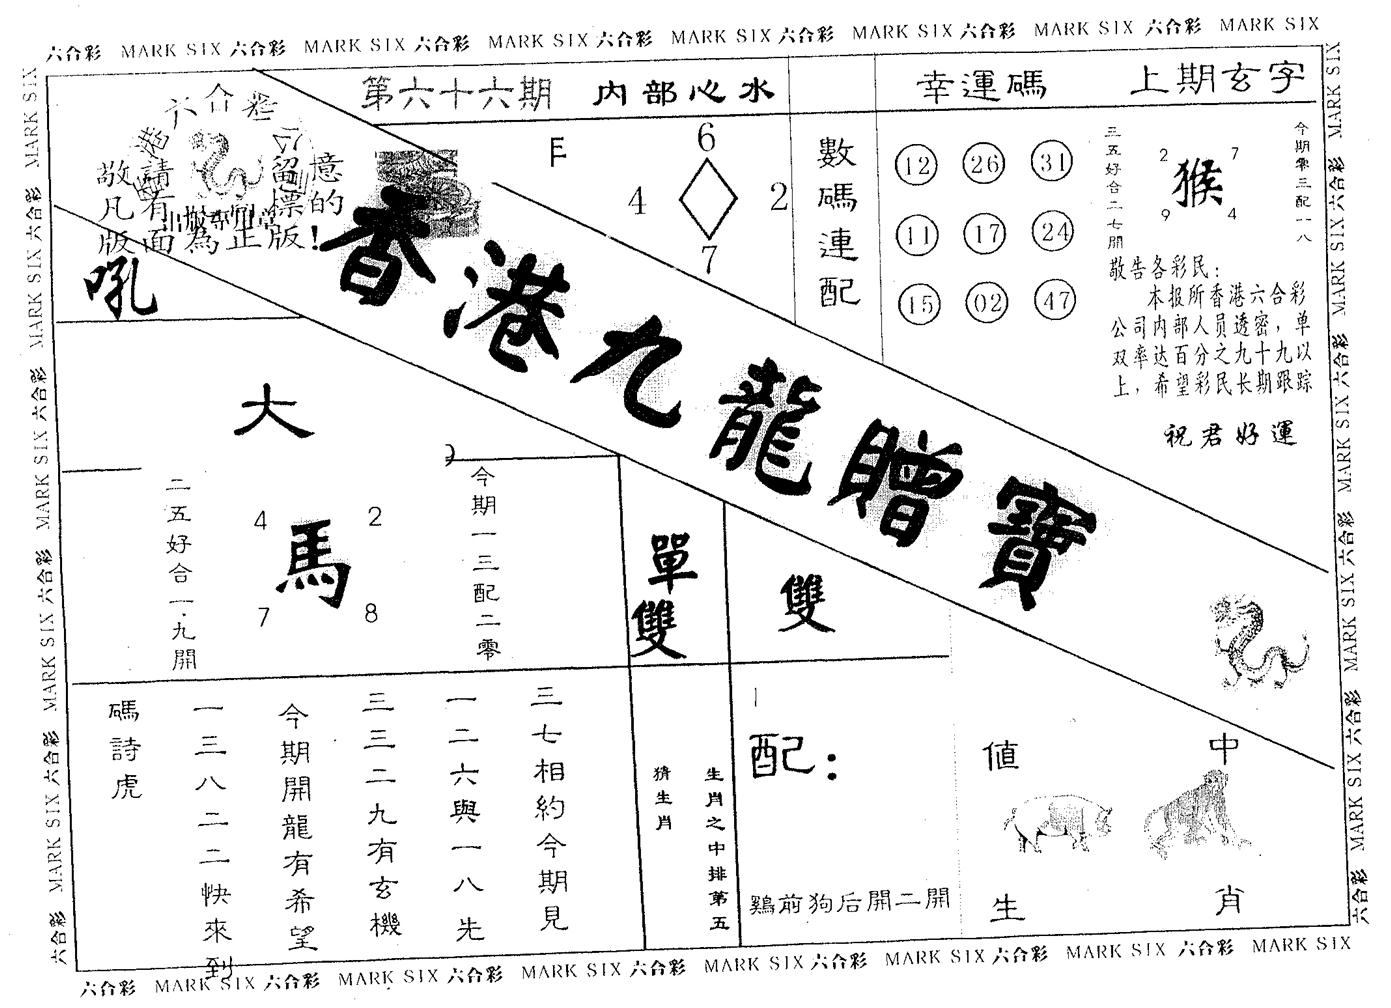 六合彩 MARK SIX 六合彩 MARK SIX 六合彩 MARK SIX 六合彩 MARK SIX 六合彩 MARK SIX 六合彩 MARK SIX 六合彩 MARK SIX
第六十六期
内部心水
幸運碼
上期玄字
六合彩
敬請留意
凡有標的
版面為正版!
吼
香港九龍贈寶
6
4
2
7
數碼連配
12 26 31
11 17 24
15 02 47
三五好合二七開
2 7
猴
9 4
今期零三配一八
敬告各彩民:
本报所香港六合彩
公司内部人员透密，单
双率达百分之九十九以
上，希望彩民长期跟踪
祝君好運
大
二五好合一.九開
4 2
馬
7 8
今期一三配二零
單雙
雙
三七相約今期見
一二六與一八先
三三二九有玄機
今期開龍有希望
一三八二二快來到
碼詩虎
生肖之中排第五
猜生肖
配:
鷄前狗后開二開
值中
生肖
六合彩 MARK SIX 六合彩 MARK SIX 六合彩 MARK SIX 六合彩 MARK SIX 六合彩 MARK SIX 六合彩 MARK SIX 六合彩 MARK SIX
MARK SIX 六合彩 MARK SIX 六合彩 MARK SIX 六合彩 MARK SIX 六合彩 MARK SIX 六合彩
MARK SIX 六合彩 MARK SIX 六合彩 MARK SIX 六合彩 MARK SIX 六合彩 MARK SIX 六合彩